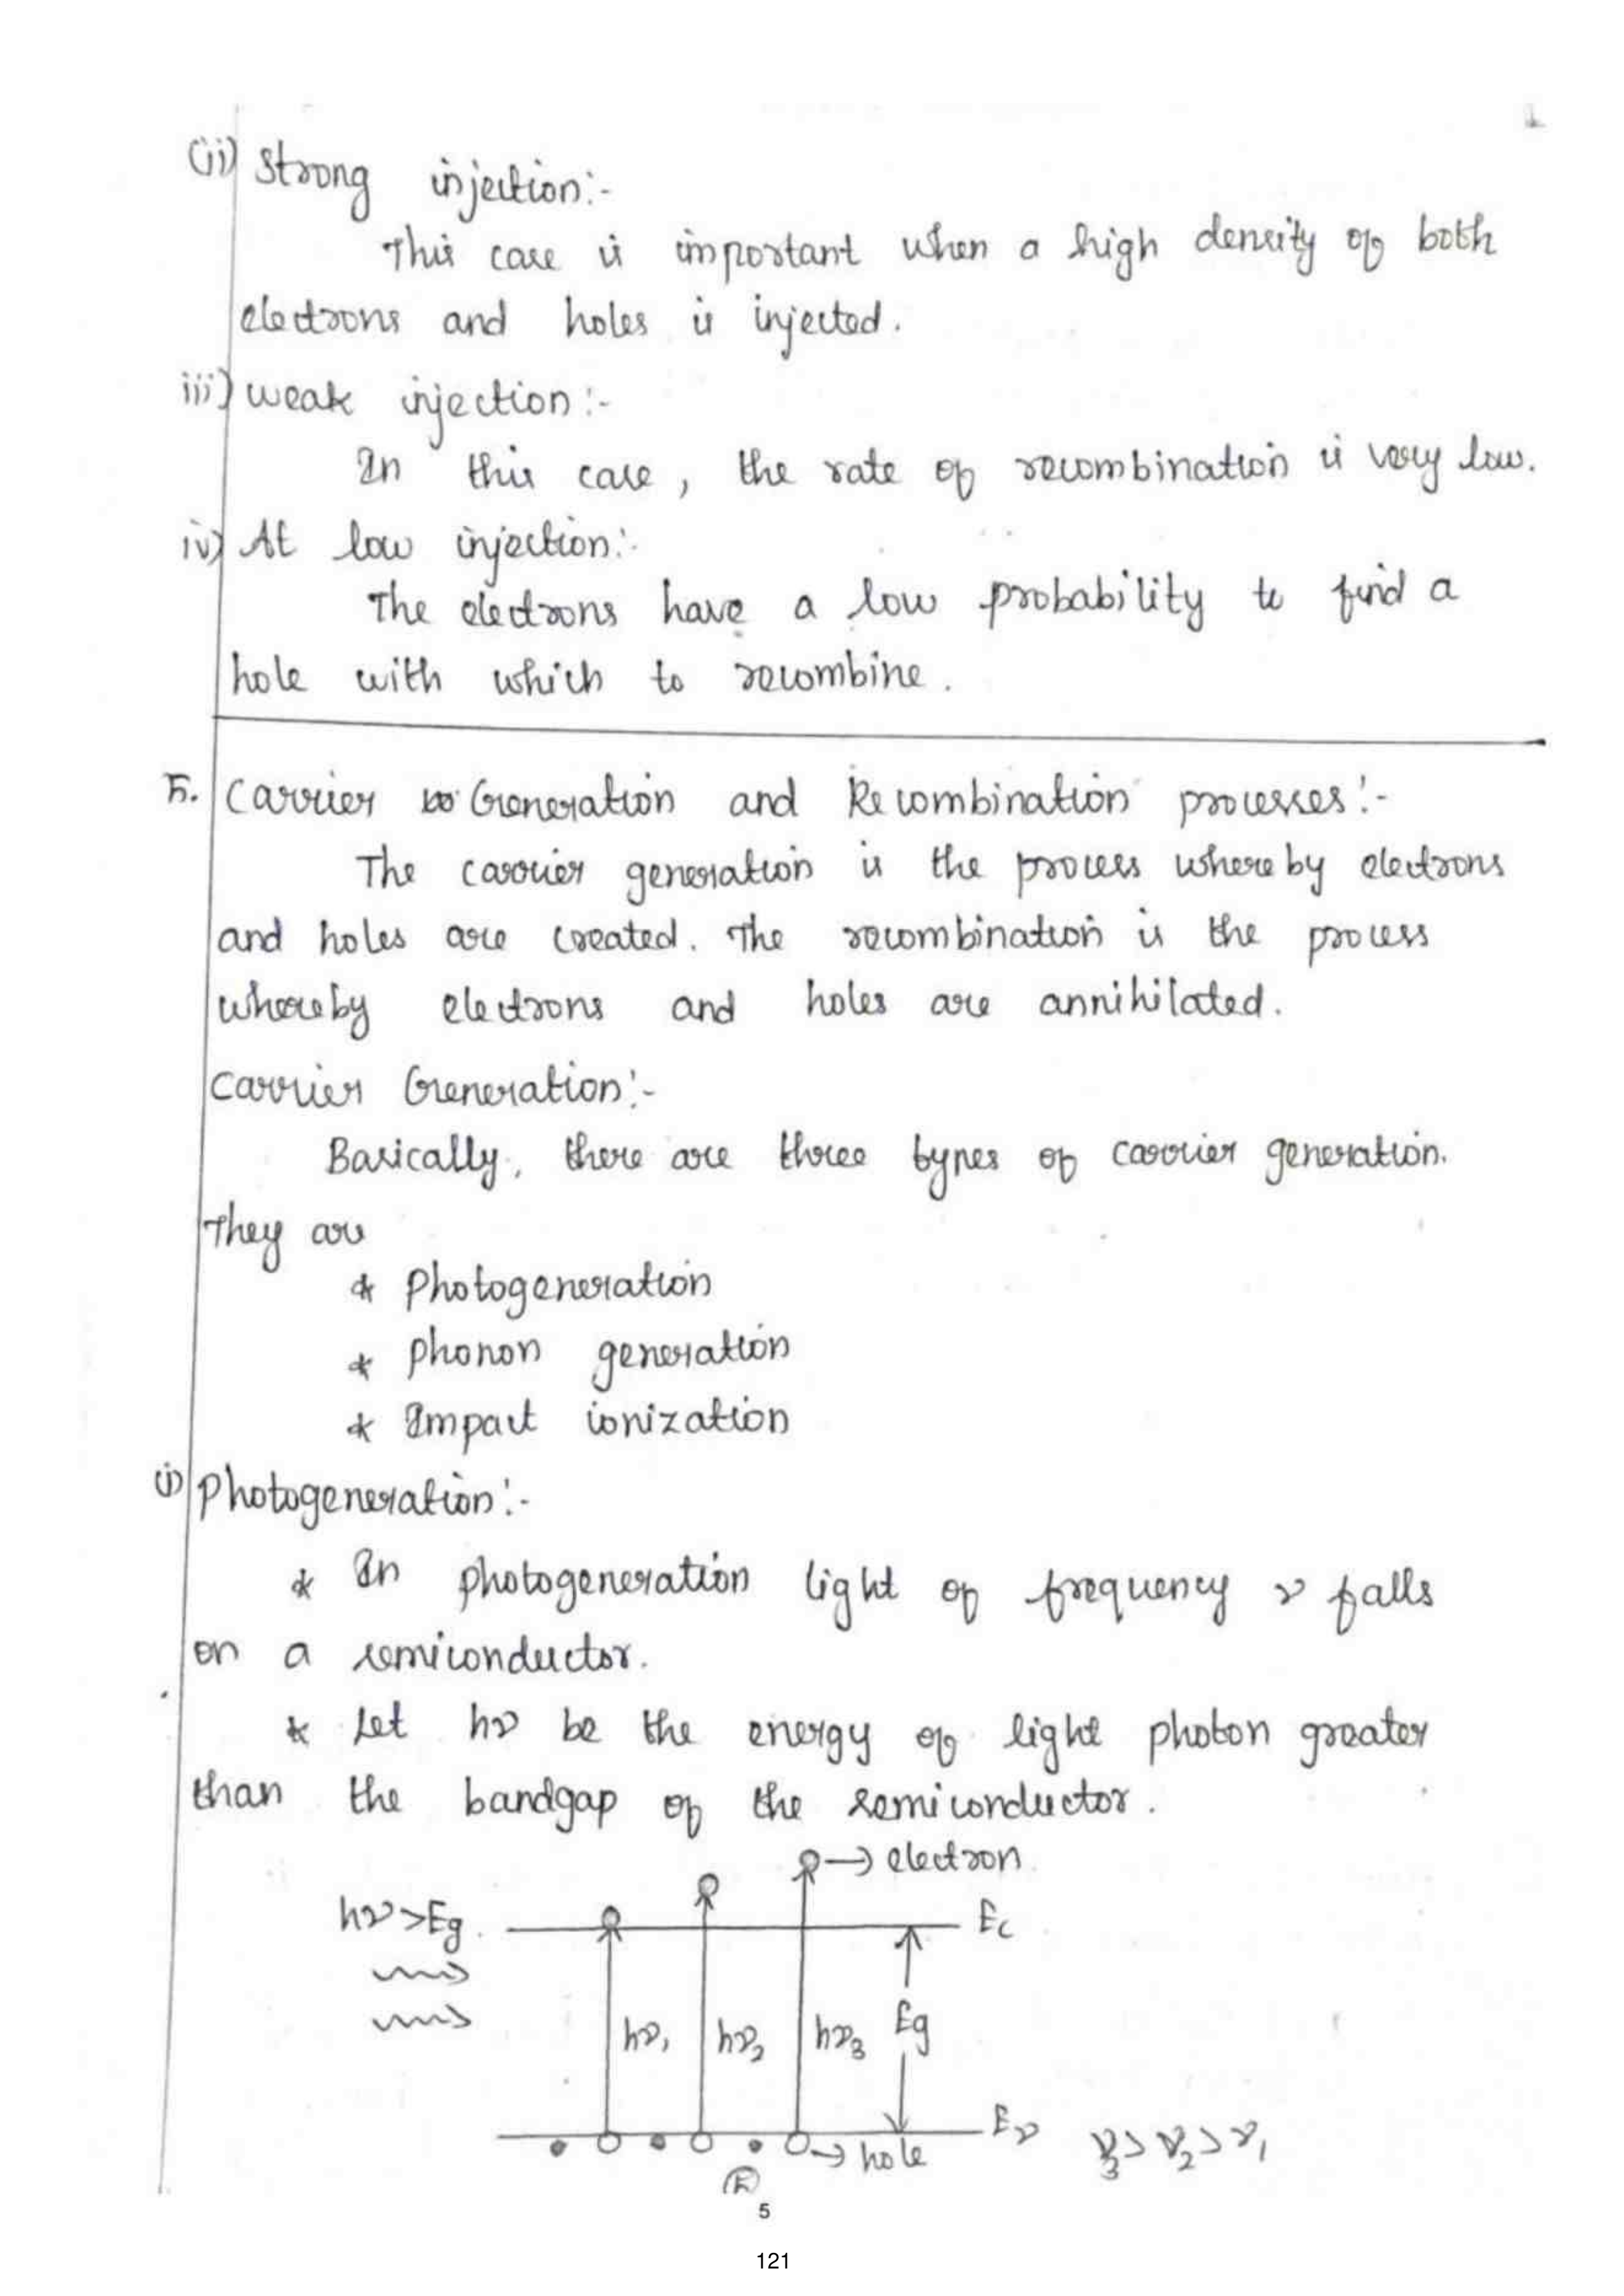 (ii) Strong injection:-
This case is important when a high density of both
electrons and holes is injected.
iii) weak injection:-
In this case, the rate of recombination is very low.
iv) At low injection:-
The electrons have a low probability to find a
hole with which to recombine.
5. Carrier Generation and Recombination processes:-
The carrier generation is the process whereby electrons
and holes are created. The recombination is the process
whereby electrons and holes are annihilated.
Carrier Generation:-
Basically, there are three types of carrier generation.
They are
* Photogeneration
* Phonon generation
* Impact ionization
(i) Photogeneration:-
* In photogeneration light of frequency ν falls
on a semiconductor.
* Let hν be the energy of light photon greater
than the bandgap of the semiconductor.
→ electron
hν>Eg
Ec
hν₁ hν₂ hν₃ Eg
Eν
→ hole
ν₃ > ν₂ > ν₁
5
5
121